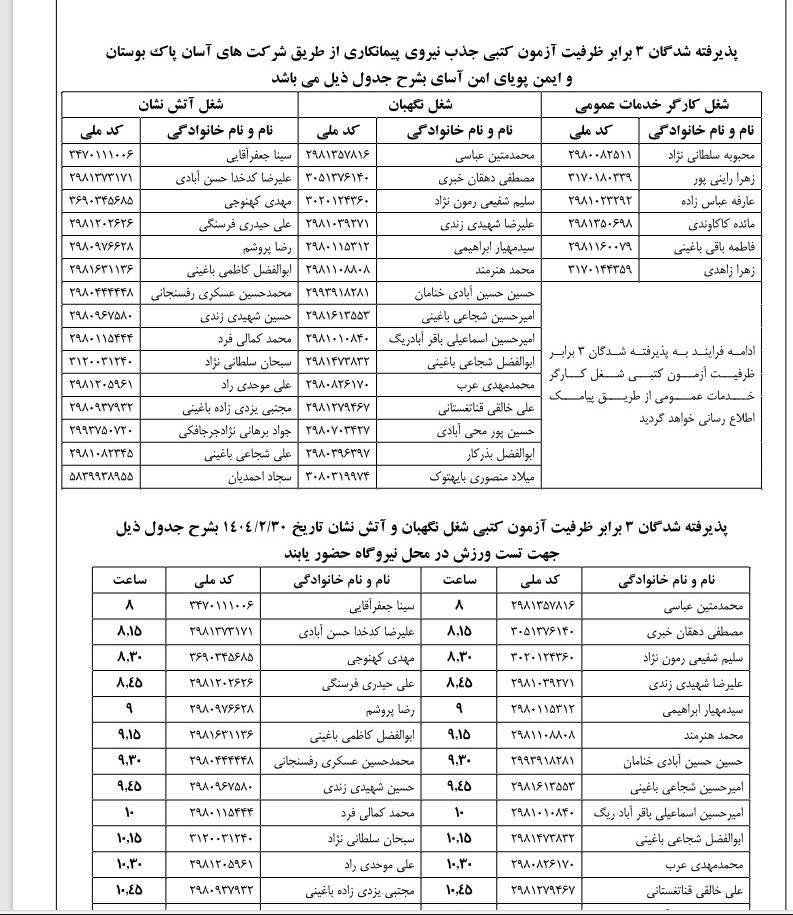 پذیرفته شدگان ۳ برابر ظرفیت آزمون کتبی جذب نیروی پیمانکاری از طریق شرکت های آسان پاک بوستان
و ایمن پویای امن آسای بشرح جدول ذیل می باشد
شغل کارگر خدمات عمومی شغل نگهبان شغل آتش نشان
نام و نام خانوادگی کد ملی نام و نام خانوادگی کد ملی نام و نام خانوادگی کد ملی
محبوبه سلطانی نژاد ۲۹۸۰۰۸۲۵۱۱ محمدمتین عباسی ۲۹۸۱۳۵۷۸۱۶ سینا جعفرآقایی ۳۴۷۰۱۱۱۰۰۶
زهرا راینی پور ۳۱۷۰۱۸۰۳۳۹ مصطفی دهقان خبری ۳۰۵۱۳۷۶۱۴۰ علیرضا کدخدا حسن آبادی ۲۹۸۱۳۷۳۱۷۱
عارفه عباس زاده ۲۹۸۱۰۲۳۲۹۲ سلیم شفیعی رمون نژاد ۳۰۲۰۱۲۴۳۶۰ مهدی کهنوجی ۳۶۹۰۳۴۵۶۸۵
مائده کاکاوندی ۲۹۸۱۳۵۰۶۹۸ علیرضا شهیدی زندی ۲۹۸۱۰۳۹۲۷۱ علی حیدری فرسنگی ۲۹۸۱۲۰۲۶۲۶
فاطمه باقی باغینی ۲۹۸۱۱۶۰۰۷۹ سیدمهیار ابراهیمی ۲۹۸۰۱۱۵۳۱۲ رضا پروشم ۲۹۸۰۹۷۶۶۲۸
زهرا زاهدی ۳۱۷۰۱۴۴۳۵۹ محمد هنرمند ۲۹۸۱۱۰۸۸۰۸ ابوالفضل کاظمی باغینی ۲۹۸۱۶۳۱۱۳۶
حسین حسین آبادی ختامان ۲۹۹۳۹۱۸۲۸۱ محمدحسین عسکری رفسنجانی ۲۹۸۰۴۴۴۴۴۸
امیرحسین شجاعی باغینی ۲۹۸۱۶۱۳۵۵۳ حسین شهیدی زندی ۲۹۸۰۹۶۷۵۸۰
امیرحسین اسماعیلی باقر آبادریگ ۲۹۸۱۰۱۰۸۴۰ محمد کمالی فرد ۲۹۸۰۱۱۵۴۴۴
ابوالفضل شجاعی باغینی ۲۹۸۱۴۷۳۸۳۲ سبحان سلطانی نژاد ۳۱۲۰۰۳۱۲۴۰
محمدمهدی عرب ۲۹۸۰۸۲۶۱۷۰ علی موحدی راد ۲۹۸۱۲۰۵۹۶۱
علی خالقی قناتغستانی ۲۹۸۱۲۷۹۴۶۷ مجتبی یزدی زاده باغینی ۲۹۸۰۹۳۷۹۳۲
حسین پور محی آبادی ۲۹۸۰۷۰۳۴۲۷ جواد برهانی نژادجرجافکی ۲۹۹۳۷۵۰۷۲۰
ابوالفضل بذرکار ۲۹۸۰۳۹۶۳۹۷ علی شجاعی باغینی ۲۹۸۱۰۸۲۳۴۵
میلاد منصوری بایهتوک ۳۰۸۰۳۱۹۹۷۴ سجاد احمدیان ۵۸۳۹۹۳۸۹۵۵
ادامه فرایند به پذیرفته شدگان ۳ برابر
ظرفیت آزمون کتبی شغل کارگر
خدمات عمومی از طریق پیامک
اطلاع رسانی خواهد گردید
پذیرفته شدگان ۳ برابر ظرفیت آزمون کتبی شغل نگهبان و آتش نشان تاریخ ۱٤۰٤/۲/۳۰ بشرح جدول ذیل
جهت تست ورزش در محل نیروگاه حضور یابند
نام و نام خانوادگی کد ملی ساعت نام و نام خانوادگی کد ملی ساعت
محمدمتین عباسی ۲۹۸۱۳۵۷۸۱۶ ۸ سینا جعفرآقایی ۳۴۷۰۱۱۱۰۰۶ ۸
مصطفی دهقان خبری ۳۰۵۱۳۷۶۱۴۰ ۸,۱٥ علیرضا کدخدا حسن آبادی ۲۹۸۱۳۷۳۱۷۱ ۸,۱٥
سلیم شفیعی رمون نژاد ۳۰۲۰۱۲۴۳۶۰ ۸,۳۰ مهدی کهنوجی ۳۶۹۰۳۴۵۶۸۵ ۸,۳۰
علیرضا شهیدی زندی ۲۹۸۱۰۳۹۲۷۱ ۸,٤٥ علی حیدری فرسنگی ۲۹۸۱۲۰۲۶۲۶ ۸,٤٥
سیدمهیار ابراهیمی ۲۹۸۰۱۱۵۳۱۲ ۹ رضا پروشم ۲۹۸۰۹۷۶۶۲۸ ۹
محمد هنرمند ۲۹۸۱۱۰۸۸۰۸ ۹,۱٥ ابوالفضل کاظمی باغینی ۲۹۸۱۶۳۱۱۳۶ ۹,۱٥
حسین حسین آبادی ختامان ۲۹۹۳۹۱۸۲۸۱ ۹,۳۰ محمدحسین عسکری رفسنجانی ۲۹۸۰۴۴۴۴۴۸ ۹,۳۰
امیرحسین شجاعی باغینی ۲۹۸۱۶۱۳۵۵۳ ۹,٤٥ حسین شهیدی زندی ۲۹۸۰۹۶۷۵۸۰ ۹,٤٥
امیرحسین اسماعیلی باقر آباد ریگ ۲۹۸۱۰۱۰۸۴۰ ۱۰ محمد کمالی فرد ۲۹۸۰۱۱۵۴۴۴ ۱۰
ابوالفضل شجاعی باغینی ۲۹۸۱۴۷۳۸۳۲ ۱۰,۱٥ سبحان سلطانی نژاد ۳۱۲۰۰۳۱۲۴۰ ۱۰,۱٥
محمدمهدی عرب ۲۹۸۰۸۲۶۱۷۰ ۱۰,۳۰ علی موحدی راد ۲۹۸۱۲۰۵۹۶۱ ۱۰,۳۰
علی خالقی قناتغستانی ۲۹۸۱۲۷۹۴۶۷ ۱۰,٤٥ مجتبی یزدی زاده باغینی ۲۹۸۰۹۳۷۹۳۲ ۱۰,٤٥